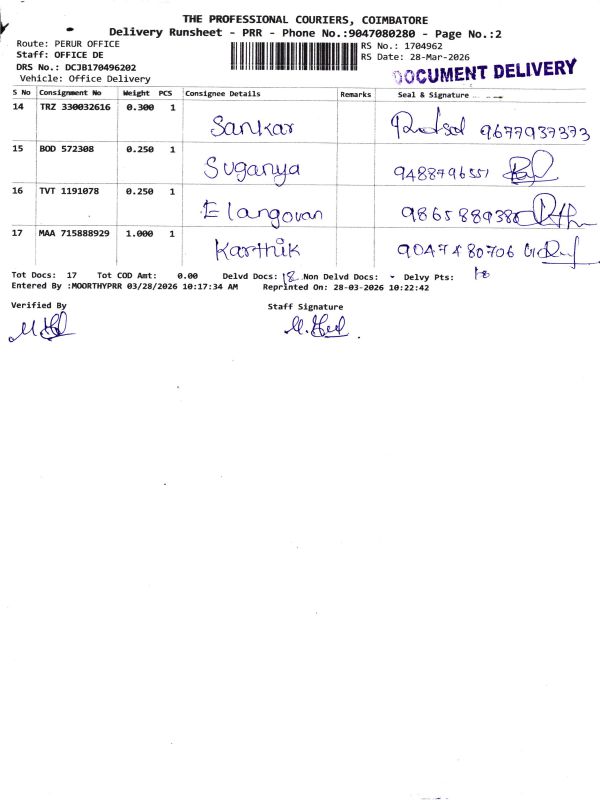 THE PROFESSIONAL COURIERS, COIMBATORE
Delivery Runsheet - PRR - Phone No.:9047080280 - Page No.:2
Route: PERUR OFFICE
Staff: OFFICE DE
DRS No.: DCJB170496202
Vehicle: Office Delivery
RS No.: 1704962
RS Date: 28-Mar-2026
DOCUMENT DELIVERY
S No Consignment No Weight PCS Consignee Details Remarks Seal & Signature
14 TRZ 330032616 0.300 1
Sankar 9677937373
15 BOD 572308 0.250 1
Suganya 9488796551
16 TVT 1191078 0.250 1
Elangovan
17 MAA 715888929 1.000 1
Karthik
Tot Docs: 17 Tot COD Amt: 0.00 Delvd Docs: 18 Non Delvd Docs: - Delvy Pts: 18
Entered By :MOORTHYPRR 03/28/2026 10:17:34 AM Reprinted On: 28-03-2026 10:22:42
Verified By Staff Signature